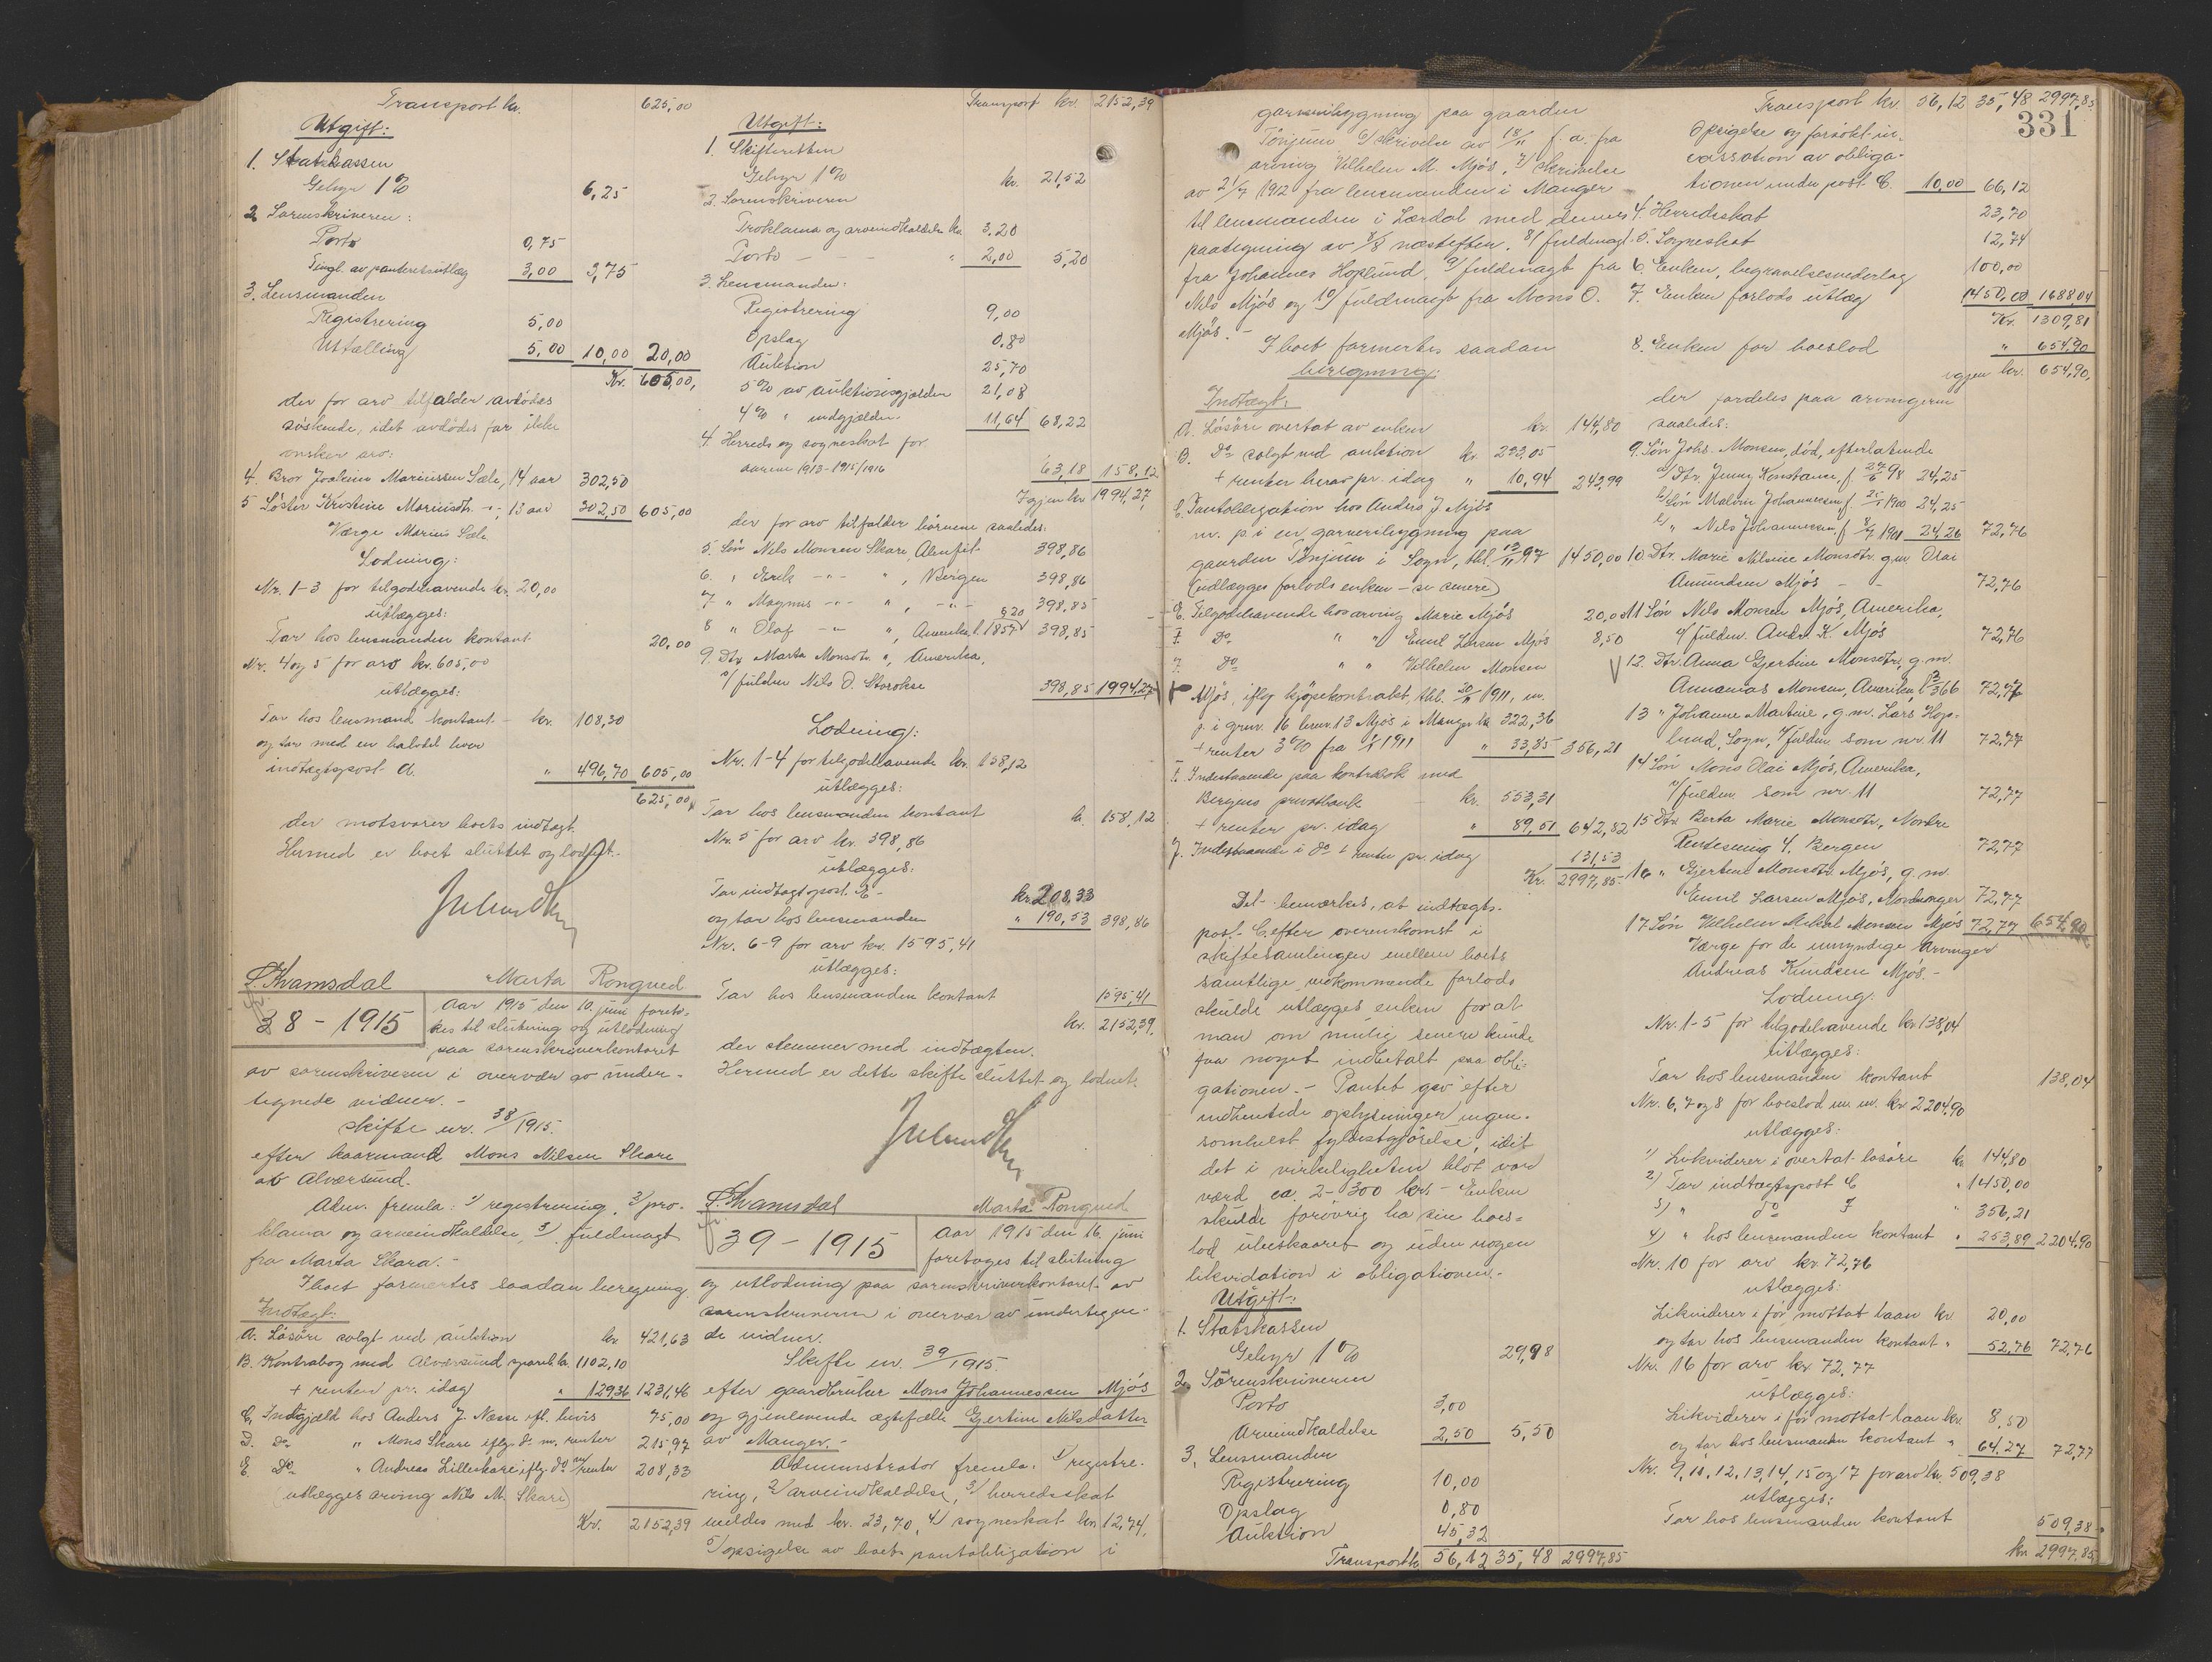 Transport kr. 625,00
Utgift:
1. Statskassen
Gebyr 1% 6,25
2 Sorenskriveren:
Porto 0,75
Tingl. av panteretsutlæg 3,00 3,75
3. Lensmanden
Registrering 5,00
Utfælling 5,00 10,00 20,00
Kr. 605,00,
der for arv tilfalder avdødes
søskende, idet avdødes far ikke
ønsker arv:
4. Bror Joakim Mariussen Sæle, 14 aar 302,50
5 Søster Kristine Mariusdtr. -"-, 13 aar 302,50 605,00
Værge Marius Sæle
Lodning:
Nr. 1-3 for tilgodehavende kr. 20,00
utlægges:
Tar hos lensmanden kontant 20,00
Nr. 4 og 5 for arv kr. 605,00
utlægges:
Tar hos lensmand kontant - kr. 108,30
og tar med en halvdel hver
indtægtspost A. " 496,70 605,00
625,00
der motsvarer boets indtægt.
Hermed er boet sluttet og loddet.
S. Kvamsdal Marta Rongved
38 - 1915
Aar 1915 den 10. juni foreto-
kes til slutning og utlodning
paa sorenskriverkontoret
av sorenskriveren i overvær av under-
tegnede vidner. -
Skifte nr. 38/1915.
efter kaarmand Mons Nilsen Skare
av Alversund.
Adm. fremla: 1/ registrering, 2/ pro-
klama og arveindkaldelse, 3/ fuldmagt
fra Marta Skara. -
I boet formertes saadan beregning.
Indtægt:
A. Løsøre solgt ved auktion kr. 421,63
B. Kontrabog med Alversund spareb. kr. 1102,10
+ renter pr. idag " 129,36 1231,46
C. Indgjæld hos Anders J. Næsse ifl. bevis 75,00
D. Do " Mons Skare iflg. do m. renter 215,97
E. Do " Andreas Lilleskare iflg. do m/ renter 208,33
(utlægges arving Nils M. Skare)
Kr. 2152,39
Transport kr. 2152,39
Utgift:
1. Skifteretten
Gebyr 1% kr. 21,52
2. Sorenskriveren
Proklama og arveindkaldelse kr. 3.20
Porto - - - " 2,00 5,20
3. Lensmanden:
Registrering 9,00
Opslag 0,80
Auktion 25,70
5% av auktionsgjælden 21,08
4% " indgjælden 11,64 68,22
4. Herreds og sogneskat for
aarene 1913-1915/1916 63,18 158,12
Igjen kr. 1994,27,
der for arv tilfalder børnene saaledes:
5. Søn Nils Monsen Skare, Alenfit- 398,86
6. " Erik -"- " , Bergen 398,86
7 " Magnus -"- " , -"- 398,85
8 " Olaf -"- " , Amerika, l. § 20 1857 398,85
9. Dtr. Marta Monsdtr. ", Amerika,
v/ fuldm Nils O. Storokse 398,85 1994,27
Lodning:
Nr. 1-4 for tilgodehavende kr. 158,12
utlægges:
Tar hos lensmanden kontant kr. 158,12
Nr. 5 for arv kr. 398,86
utlægges:
Tar indtægtspost. E- kr. 208,33
og tar hos lensmanden " 190,53 398,86
Nr. 6-9 for arv kr. 1595,41
utlægges:
Tar hos lensmanden kontant 1595,41
kr. 2152,39.
der stemmer med indtægten.
Hermed er dette skifte sluttet og loddet.
S. Kvamsdal Marta Rongved
39 - 1915
Aar 1915 den 16. juni
foretoges til slutning
og utlodning paa sorenskriverkontoret av
sorenskriveren i overvær av undertegne-
de vidner.
Skifte nr. 39/1915.
efter gaardbruker Mons Johannessen Mjøs
og gjenlevende ægtefælle Gjertine Nilsdatter
av Manger. -
Administrator fremla: 1/ registre-
ring, 2/ arveindkaldelse, 3/ herredsskat
meldes med kr. 23,70, 4/ sogneskat kr. 12,74,
5/ opsigelse av boets pantobligation i
331
garveribygning paa gaarden
Tønjum 6/ skrivelse av 18/11 f. a. fra
arving Vilhelm M. Mjøs, 7/ skrivelse
av 21/7 1912 fra lensmanden i Manger
til lensmanden i Lærdal med dennes
paategning av 8/8 næstefter. 8/ fuldmagt
fra Johannes Hoplund. 9/ fuldmagt fra
Nils Mjøs og 10/ fuldmagt fra Mons O.
Mjøs. -
I boet formertes saadan
beregning:
Indtægt:
A. Løsøre overtat av enken kr. 144,80
B. Do solgt ved auktion kr. 232,05
+ renter herav pr. idag " 10,94 242,99
C. Pantobligation hos Anders J. Mjøs
m. p. i en garveribygning paa
gaarden Tønjum i Sogn, tbl. 13/11 97 1450,00
(utlægges forlods enken - se senere)
E. Tilgodehavende hos arving Marie Mjøs 20,00
F. Do " " Emil Larsen Mjøs 8,50
F Do " " Vilhelm Monsen
Mjøs, iflg kjøpekontrakt, tbl. 20/4 1911, m.
p. i grnr. 16 brnr. 13 Mjøs i Manger kr. 322,36
+ renter 3% fra 1/1 1911 " 33,85 356,21
I. Indestaaende paa kontrabok med
Bergens privatbank kr. 553,31
+ renter pr. idag " 89,51 642,82
J. Indestaaende i do + renter pr. idag 131,53
Kr. 2997,85.
Det bemærkes, at indtægts-
post C. efter overenskomst i
skiftesamlingen mellem boets
samtlige vedkommende forlods
skulde utlægges enken for at
man om mulig senere kunde
faa noget indbetalt paa obli-
gationen. - Pantet gav efter
indhentede oplysninger ingen-
somhelst fyldestgjørelse, idet
det i virkeligheten blot var
værd ca. 2-300 kr. - Enken
skulde forøvrig ha sin boes-
lod ubeskaaret og uden nogen
likvidation i obligationen. -
Utgift:
1. Statskassen
Gebyr 1% 29,98
2. Sorenskriveren
Porto 3,00
Arveindkaldelse 2,50 5,50
3. Lensmanden
Registrering 10,00
Opslag 0,80
Auktion 45,32
Transport kr. 56,12 35,48 2997,85
Transport kr. 56,12 35,48 2997,85
Opsigelse og forsøkt in-
cassation av obliga-
tionen under post C. 10,00 66,12
4. Herredsskat 23,70
5. Sogneskat 12,74
6. Enken, begravelsesvederlag 100,00
7. Enken forlods utlæg 1450,00 1688,04
Kr. 1309,81
8. Enken for boeslod " 654,90
igjen kr. 654,90,
der fordeles paa arvingerne
saaledes:
9. Søn Johs. Monsen, død, efterlatende
a/ Dtr. Jenny Konstanse, f. 27/6 98 24,25
b/ Søn Malvin Johannessen f. 25/1 1900 24,25
c/ " Nils Johannessen f. 8/7 1901 24,26 72,76
10. Dtr. Marie Nilsine Monsdtr. g.m. Olai
Amundsen Mjøs - - 72,76
11 Søn Nils Monsen Mjøs, Amerika,
v/ fuldm. Andr. K. Mjøs 72,76
12. Dtr. Anna Gjertine Monsdtr, g. m.
Annanias Monsen, Amerika, 72,77
13 " Johanne Martine, g. m. Lars Hop-
lund, Sogn, v/ fuldm som nr. 11 72,77
14 Søn Mons Olai Mjøs, Amerika,
v/ fuldm. som nr. 11 72,77
15 Dtr. Berta Marie Monsdtr, Nordre
4, Bergen 72,77
16 " Gjertine Monsdtr. Mjøs, g. m.
Emil Larsen Mjøs, Nordmanger 72,77
17 Søn Vilhelm Mikal Monsen Mjøs 72,77 654,90
Værge for de umyndige arvinger
Andreas Knudsen Mjøs. -
Lodning:
Nr. 1-5 for tilgodehavende kr. 138,04
utlægges:
Tar hos lensmanden kontant 138,04
Nr. 6, 7 og 8 for boeslod m. m. kr. 2204,90
utlægges:
1) Likviderer i overtat løsøre kr. 144,80
2) Tar indtægtspost C " 1450,00
3) " do F " 356,21
4) " hos lensmanden kontant " 253,89 2204,90
Nr. 10 for arv kr. 72,76
utlægges:
Likviderer i før mottat laan kr. 20,00
og tar hos lensmanden kontant " 52,76 72,76
Nr. 16 for arv kr. 72,77
utlægges:
Likviderer i før mottat laan kr. 8,50
og tar hos lensmanden kontant " 64,27 72,77
Nr. 9, 11, 12, 13, 14, 15 og 17 for arv kr. 509,38
utlægges:
Tar hos lensmanden kontant 509,38
kr. 2997,85